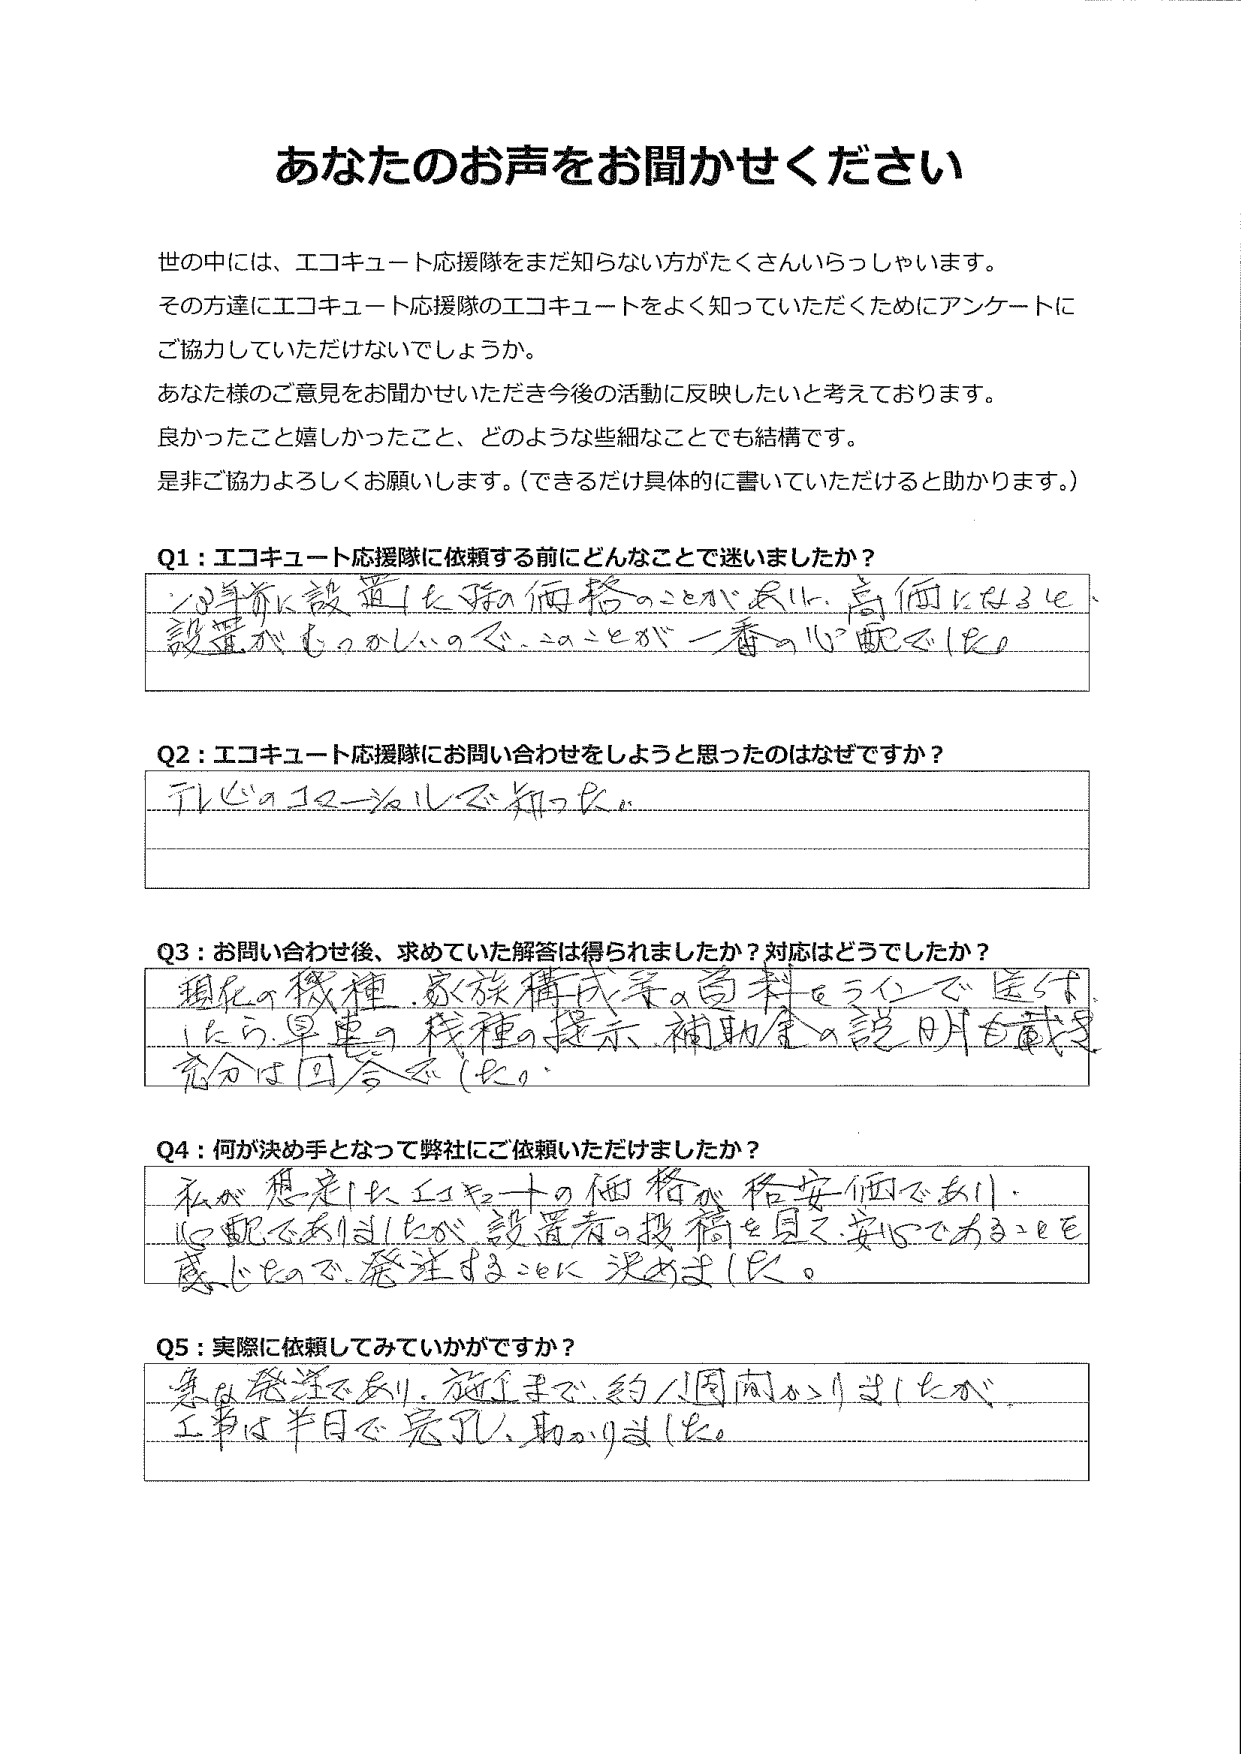 あなたのお声をお聞かせください
世の中には、エコキュート応援隊をまだ知らない方がたくさんいらっしゃいます。
その方達にエコキュート応援隊のエコキュートをよく知っていただくためにアンケートに
ご協力していただけないでしょうか。
あなた様のご意見をお聞かせいただき今後の活動に反映したいと考えております。
良かったこと嬉しかったこと、どのような些細なことでも結構です。
是非ご協力よろしくお願いします。（できるだけ具体的に書いていただけると助かります。）
Q1：エコキュート応援隊に依頼する前にどんなことで迷いましたか？
年前に設置した際の価格のことがあり、高価になると、
設置がむつかしいので、このことが一番の心配でした。
Q2：エコキュート応援隊にお問い合わせをしようと思ったのはなぜですか？
テレビのコマーシャルで知った。
Q3：お問い合わせ後、求めていた解答は得られましたか？対応はどうでしたか？
現在の機種、家族構成等の資料をラインで送付
したら、早速の機種の提示、補助金の説明も
充分は回答でした。
Q4：何が決め手となって弊社にご依頼いただけましたか？
私が想定したエコキュートの価格が格安価であり、
心配でありましたが、設置者の投稿を見て、安心であることを
感じたので、発注することに決めました。
Q5：実際に依頼してみていかがですか？
急な発注であり、施工まで、約1週間かかりましたが、
工事は半日で完了し、助かりました。